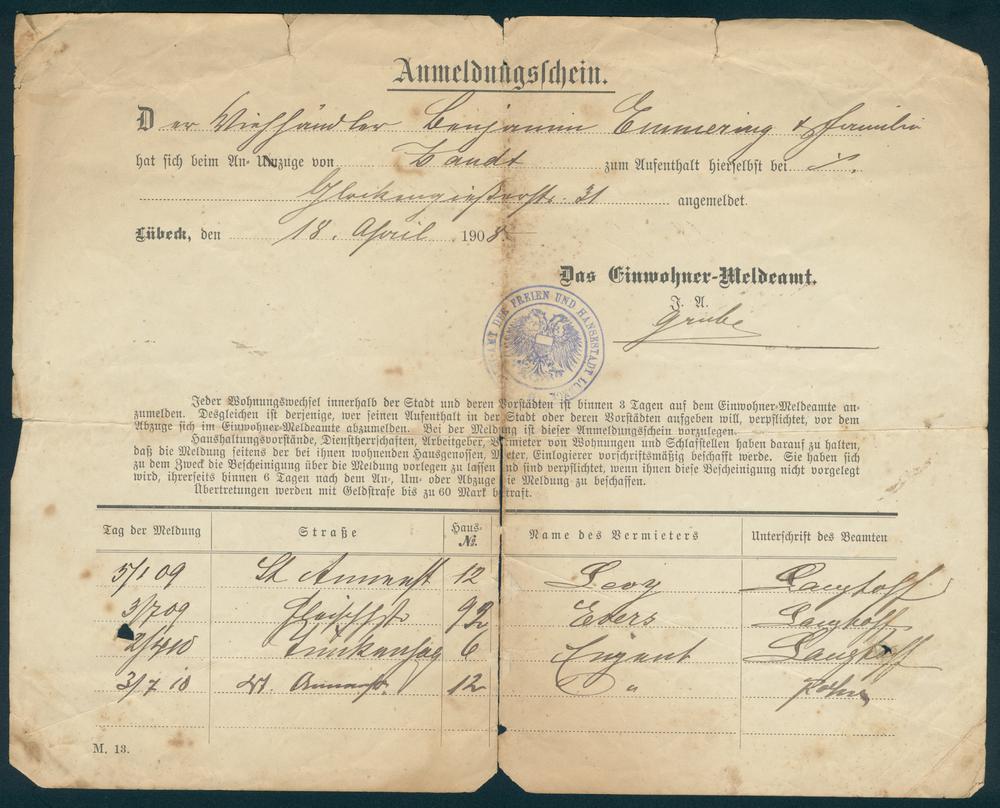 Anmeldungsschein.
Der Viehhändler Benjamin Emmering & Familie
hat sich beim An- Umzuge von Zandt zum Aufenthalt hierselbst bei
Glockengießerstr. 31 angemeldet.
Lübeck, den 18. April 1908.
Das Einwohner-Meldeamt.
J. A.
Grube
AMT DER FREIEN UND HANSESTADT LÜBECK
Jeder Wohnungswechsel innerhalb der Stadt und deren Vorstädten ist binnen 3 Tagen auf dem Einwohner-Meldeamte an-
zumelden. Desgleichen ist derjenige, wer seinen Aufenthalt in der Stadt oder deren Vorstädten aufgeben will, verpflichtet, vor dem
Abzuge sich im Einwohner-Meldeamte abzumelden. Bei der Meldung ist dieser Anmeldungsschein vorzulegen.
Haushaltungsvorstände, Dienstherrschaften, Arbeitgeber, Vermieter von Wohnungen und Schlafstellen haben darauf zu halten,
daß die Meldung seitens der bei ihnen wohnenden Hausgenossen, Mieter, Einlogierer vorschriftsmäßig beschafft werde. Sie haben sich
zu dem Zweck die Bescheinigung über die Meldung vorlegen zu lassen und sind verpflichtet, wenn ihnen diese Bescheinigung nicht vorgelegt
wird, ihrerseits binnen 6 Tagen nach dem An-, Um- oder Abzuge die Meldung zu beschaffen.
Übertretungen werden mit Geldstrafe bis zu 60 Mark bestraft.
Tag der Meldung Straße Haus-№. Name des Vermieters Unterschrift des Beamten
5/1 09 St Annenst 12 Levy Langhoff
3/7 09 Fleischst 92 Evers Langhoff
10 6 Langhoff
3/7 10 St. Annenstr. 12 "
M. 13.